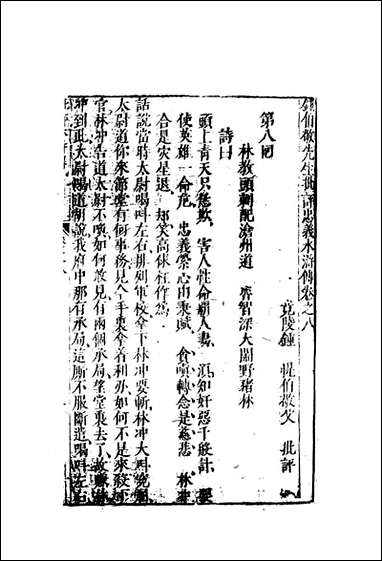 鍾伯敬先生批評忠義水滸傳卷之八
竟陵鍾 惺伯敬父 批評
第八回
林教頭刺配滄州道 魯智深大鬧野猪林
詩曰
頭上青天只恁欺 害人性命霸人妻 須知奸惡千般計 要
使英雄一命危 忠義縈心由秉賦 貪嗔轉念是慈悲 林冲
合是灾星退 却笑高俅枉作爲
話說當時太尉喝呌左右排列軍校拿下林冲要斬林冲大呌寃屈
太尉道你來節堂有何事務見今手裏拿着利刃如何不是來殺下
官林冲告道太尉不喚如何敢見有兩個承局望堂裏去了故賺林
冲到此太尉喝道胡說我府中那有承局這厮不服斷遣喝呌左右